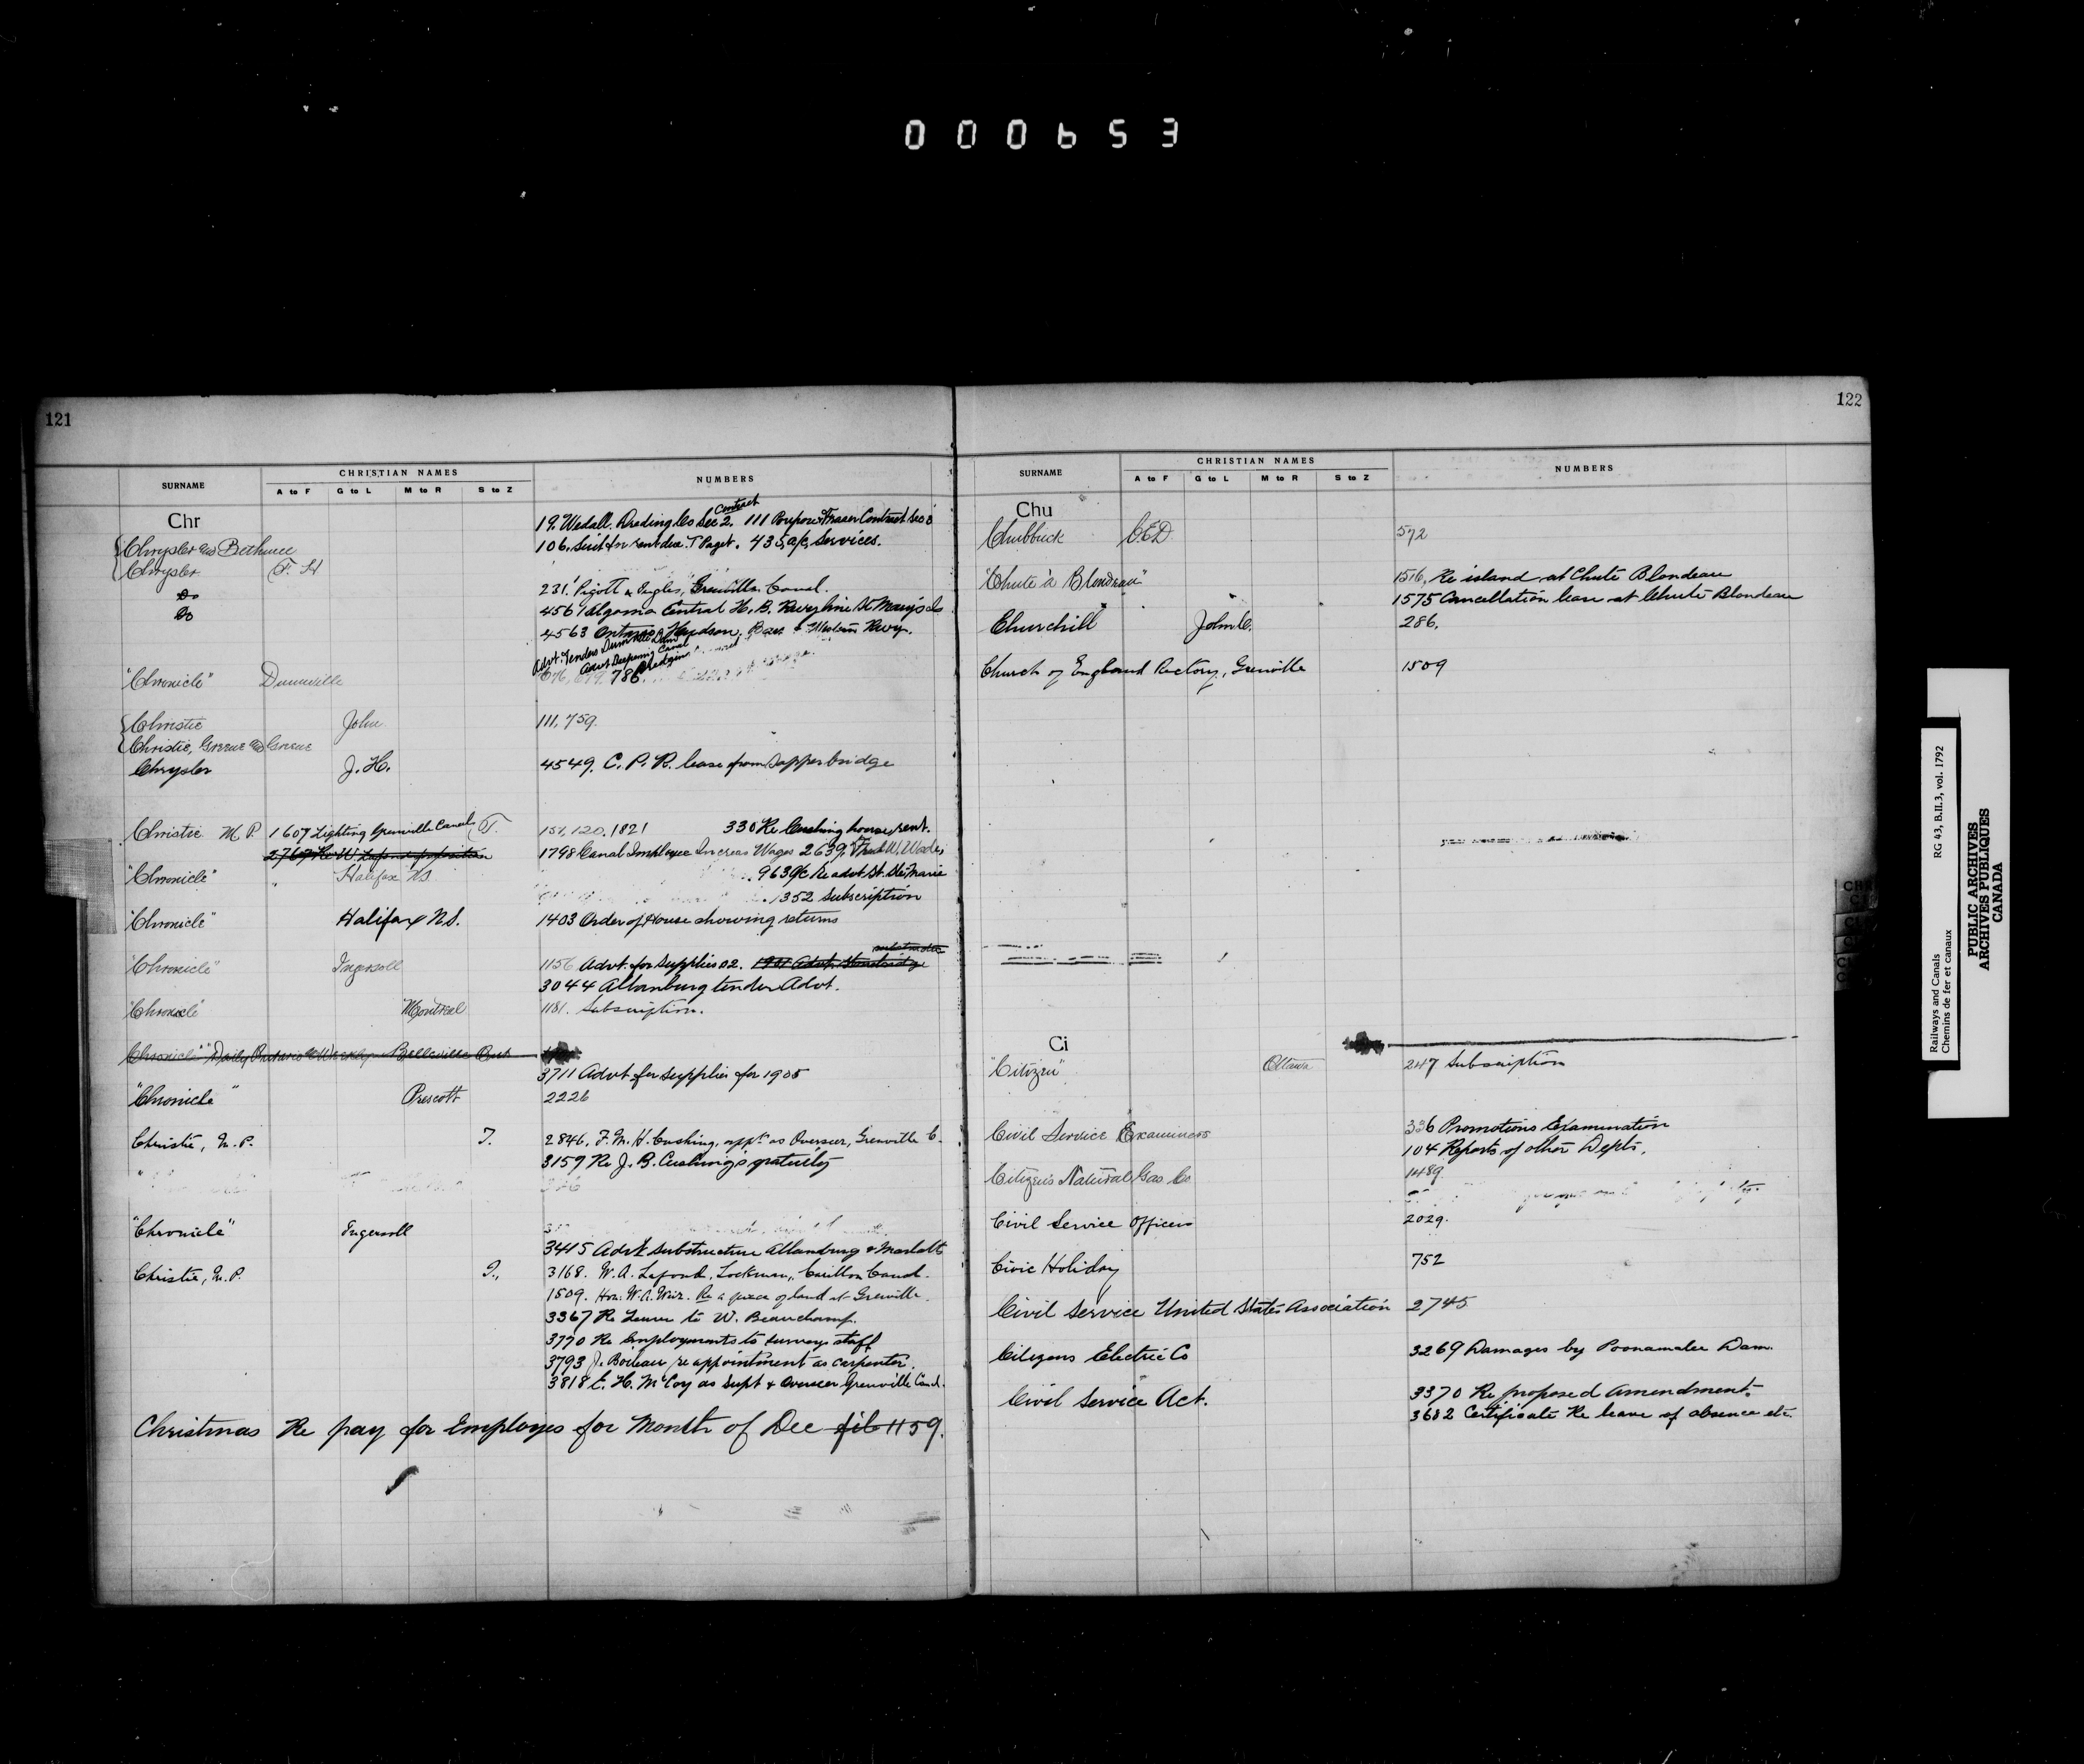 000653
121
SURNAME
CHRISTIAN NAMES
A to F G to L M to R S to Z
NUMBERS
Chr
19. Wedall. Dredging Co Sec 2. Contract 111 Poupore & Fraser Contract Sec 3
Chrysler and Bethune
106. Suit for rent due. T Paget. 435, a/c, services.
Chrysler F. H
Do
231. Pigott & Ingles, Grenville Canal.
Do
4561 Algoma Central H. B. Rwy line St Mary's
4563 Ontario Hudson Bay & Western Rwy.
Advt. Tenders Dunnville Dam
Advt Deepening Canal
Dredging
"Chronicle" Dunnville
676, 679, 786.
Christie John
111, 759.
Christie, Greene and Greene
Chrysler J. H.
4549. C. P. R. lease from Sapper bridge
Christie M P. 1607 Lighting Grenville Canal T.
151, 120, 1821 330 Re Cushing house, rent.
2769 Re W. Lafond position
1798 Canal Employee Increas Wages 2639 Fred W. Wade
"Chronicle" Halifax N.S.
963 a/c Re advt St. Ste Marie
1352 Subscription
"Chronicle" Halifax N.S.
1403 Order of House showing returns
"Chronicle" Ingersoll
1156 Advt. for Supplies 02.
3044 Allanburg tender Advt.
"Chronicle" Montreal
1181. Subscription.
"Chronicle" "Daily Ontario & Weekly" Belleville Ont
3711 Advt for supplies for 1905
"Chronicle" Prescott
2226
Christie, M. P. T.
2846, F. M. H. Cushing, appt. as Overseer, Grenville C.
3159 Re J. B. Cushing's gratuity
"Chronicle" Ingersoll
3415 Advt Substructure Allanburg & Marlatts
Christie, M. P. T.,
3168. W. A. Lafond, Lockman, Carillon Canal.
1509. Hon. W. A. Weir. Re a piece of land at Grenville.
3367 Re Lease to W. Beauchamp.
3770 Re Employments to survey staff
3793 J. Boileau re appointment as carpenter.
3818 E. H. McCoy as Supt & Overseer Grenville Canal.
Christmas Re pay for Employes for Month of Dec file 1159.
122
SURNAME
CHRISTIAN NAMES
A to F G to L M to R S to Z
NUMBERS
Chu
Chubbuck C.E.D
572
"Chute à Blondeau"
1516, Re island at Chute Blondeau
1575 Cancellation lease at Chute Blondeau
Churchill John C.
286.
Church of England Rectory, Grenville
1509
Ci
"Citizen" Ottawa
247 Subscription
Civil Service Examiners
336 Promotions Examination
104 Reports of other Depts.
Citizens Natural Gas Co
1489
Civil Service Officers
2029.
Civic Holiday
752
Civil Service United States Association
2745
Citizens Electric Co
3269 Damages by Poonamalee Dam.
Civil Service Act.
3370 Re proposed amendment.
3682 Certificate Re leave of absence etc.
Railways and Canals
Chemins de fer et canaux
RG 43, B.II.3, vol. 1792
PUBLIC ARCHIVES
ARCHIVES PUBLIQUES
CANADA